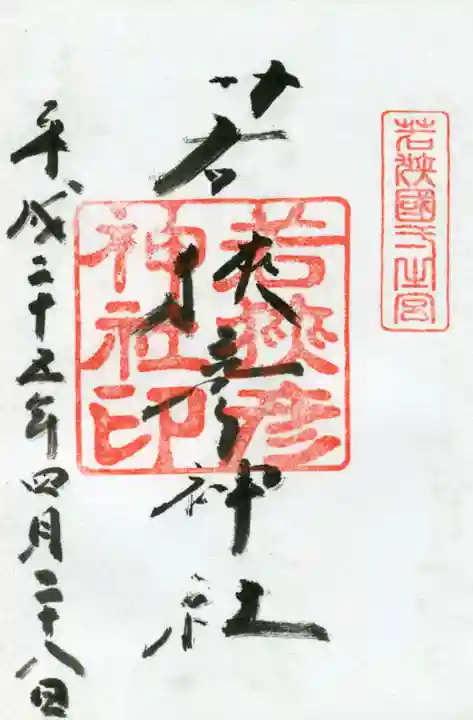 若狭國一之宮
若狭彦神社
若狭彦
神社印
平成二十五年四月二十八日